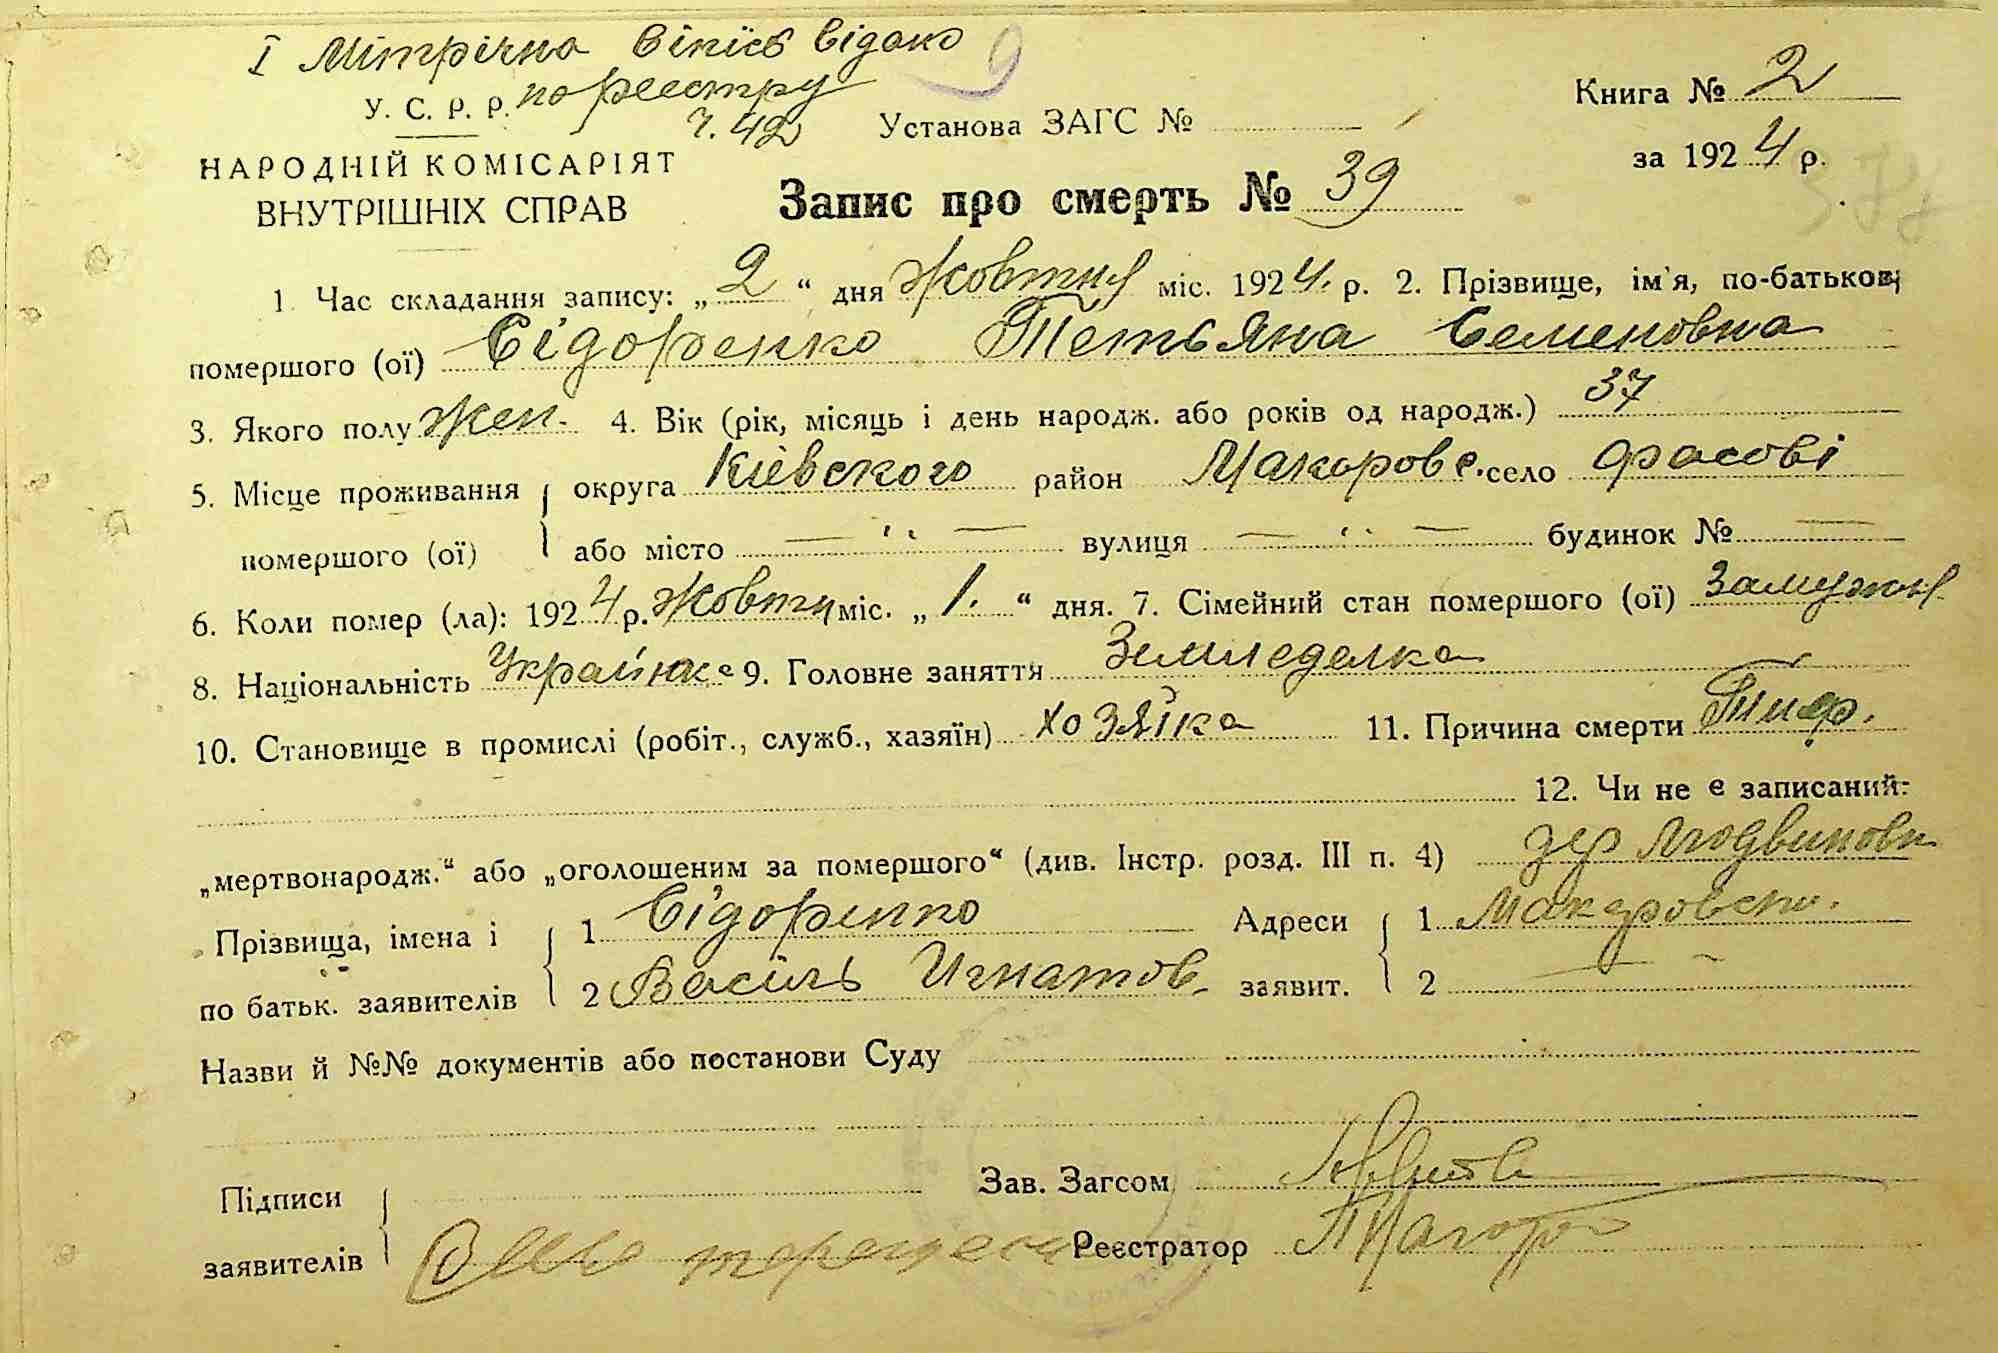 І Мітрічна Віпіс Відано
по реестру
ч. 42
9
У. С. Р. Р.
НАРОДНІЙ КОМІСАРІЯТ
ВНУТРІШНІХ СПРАВ
Установа ЗАГС №
Книга № 2
за 1924 р.
Запис про смерть № 39
1. Час складання запису: „2“ дня Жовтня міс. 1924. р. 2. Прізвище, ім'я, по-батькові
помершого (ої) Сідоренко Тетьяна Семеновна
3. Якого полу жен. 4. Вік (рік, місяць і день народж. або років од народж.) 37
5. Місце проживання округа Киівского район Макарове. село Фасові
помершого (ої) або місто — " — вулиця — " — будинок № —
6. Коли помер (ла): 1924 р. Жовтн міс. „1.“ дня. 7. Сімейний стан помершого (ої) Замужня
8. Національність Украйнка 9. Головне заняття Земледелка
10. Становище в промислі (робіт., служб., хазяїн) хозяйка 11. Причина смерти Тиф.
12. Чи не є записаний:
„мертвонародж.“ або „оголошеним за помершого“ (див. Інстр. розд. III п. 4)
Прізвища, імена і 1 Сідоренко Адреси 1 Макаровско.
по батьк. заявителів 2 Василь Игнатов. заявит. 2 —
Назви й №№ документів або постанови Суду
Підписи Зав. Загсом
заявителів Реєстратор